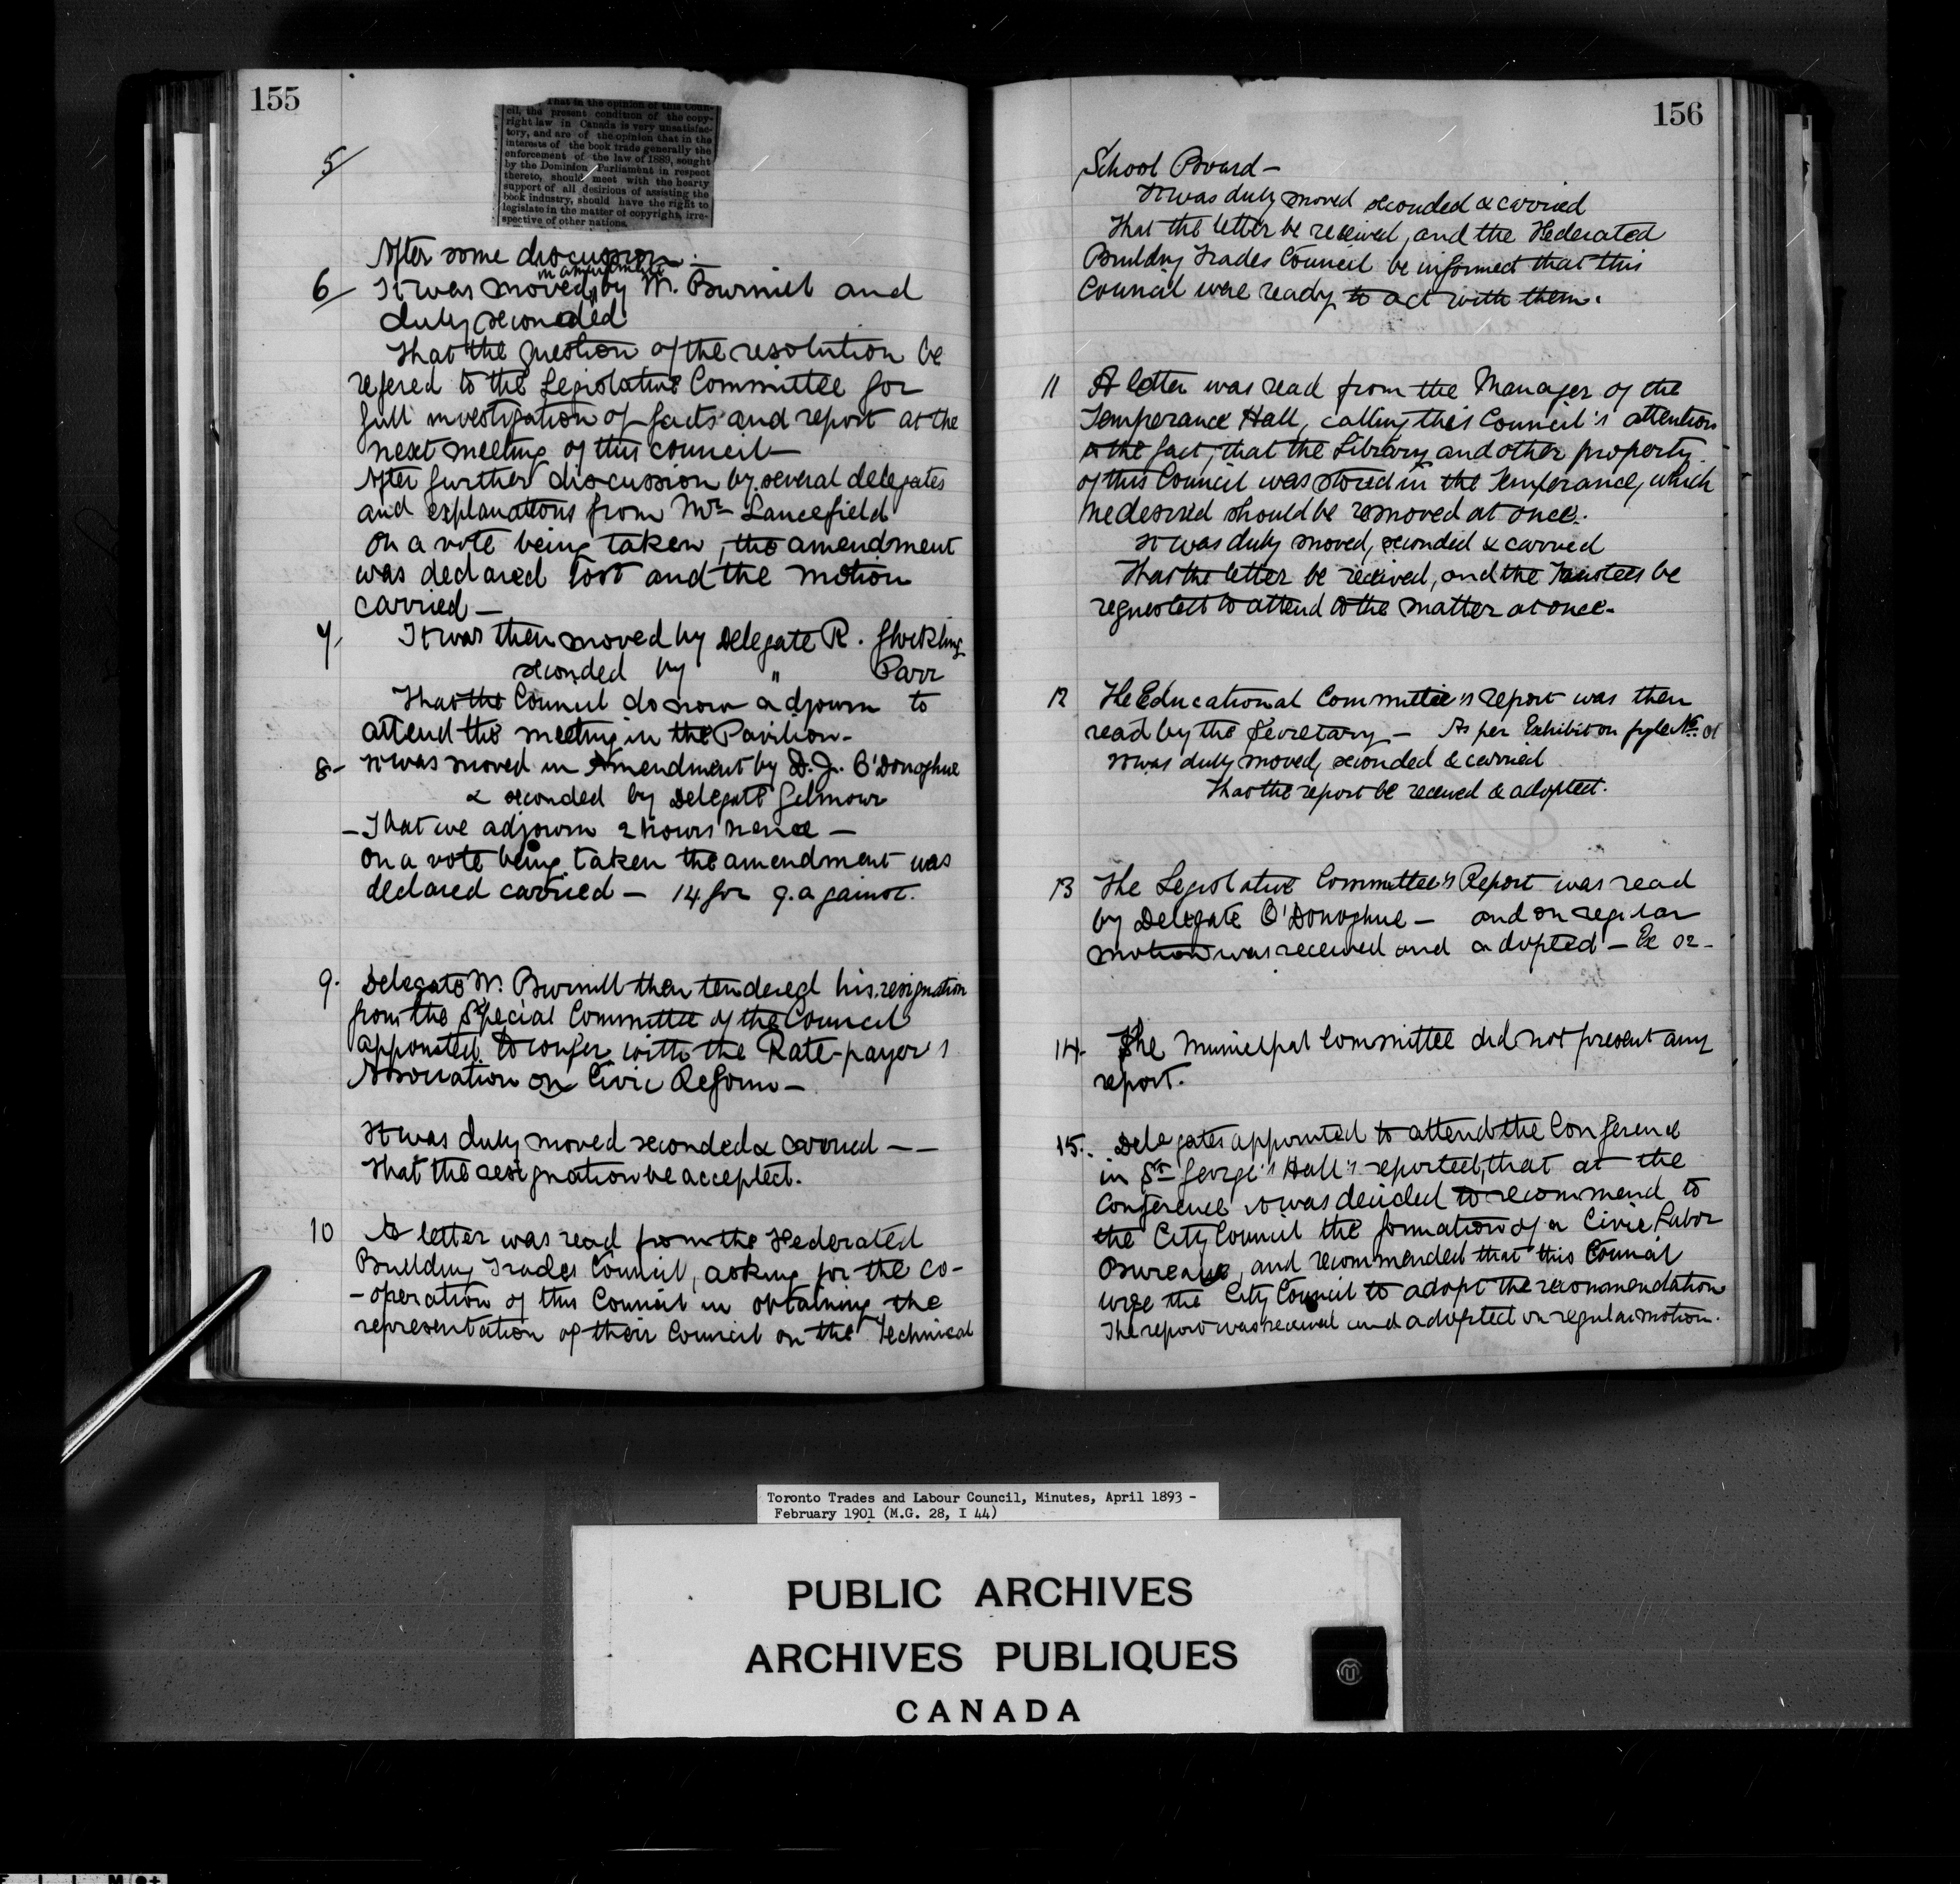 155
That in the opinion of this Coun-
cil, the present condition of the copy-
right law in Canada is very unsatisfac-
tory, and are of the opinion that in the
interests of the book trade generally the
enforcement of the law of 1889, sought
by the Dominion Parliament in respect
thereto, should meet with the hearty
support of all desirious of assisting the
book industry, should have the right to
legislate in the matter of copyright, irre-
spective of other nations.
5/
After some discussion —
in amendment
6/ It was moved by W. Burnill and
duly seconded
That the question of the resolution be
refered to the Legislative Committee for
full investigation of facts and report at the
next meeting of this council —
After further discussion by several delegates
and explanations from Mr Lancefield
On a vote being taken, the amendment
was declared lost and the motion
carried —
7, It was then moved by Delegate R. Glockling
seconded by " Parr
That the Council do now adjourn to
attend the meeting in the Pavilion —
8 - It was moved in Amendment by D.J. O'Donoghue
& seconded by Delegate Gilmour
— That we adjourn 2 hours hence —
On a vote being taken the amendment was
declared carried — 14 for 9. against.
9. Delegate W. Burnill then tendered his resignation
from the Special Committee of the Council
appointed to confer with the Rate-payer's
Association on Civic Reform —
It was duly moved seconded & carried — —
That the resignation be accepted.
10 A letter was read from the Federated
Building Trades Council, asking for the co-
- operation of this Council in obtaining the
representation of their Council on the Technical
156
School Board —
It was duly moved seconded & carried
That the letter be received, and the Federated
Building Trades Council be informed that this
Council were ready to act with them.
11 A letter was read from the Manager of the
Temperance Hall, calling this Council's attention
to the fact, that the Library and other property
of this Council was stored in the Temperance, which
he desired should be removed at once.
It was duly moved, seconded & carried
That the letter be received, and the Trustees be
requested to attend to the matter at once.
12 The Educational Committee's report was then
read by the Secretary — As per Exhibit on fyle No. 01
It was duly moved, seconded & carried
That the report be received & adopted.
13 The Legislative Committee's Report was read
by Delegate O'Donoghue — and on regular
motion was received and adopted — Ex 02 -
14. The Municipal Committee did not present any
report.
15. Delegates appointed to attend the Conference
in St George's Hall reported, that at the
Conference it was decided to recommend to
the City Council the formation of a Civic Labor
Bureau, and recommended that this Council
urge the City Council to adopt the recommendation
The report was received and adopted on regular motion.
Toronto Trades and Labour Council, Minutes, April 1893 -
February 1901 (M.G. 28, I 44)
PUBLIC ARCHIVES
ARCHIVES PUBLIQUES
CANADA